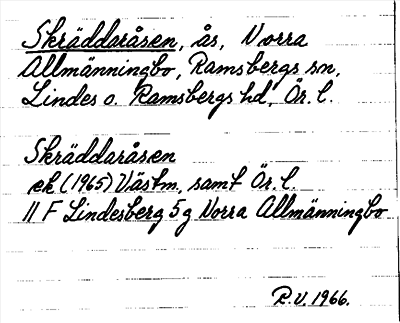 Skräddaråsen, ås, Norra
Allmänningbo, Ramsbergs sn,
Lindes o. Ramsbergs hd, Ör. l.
Skräddaråsen
ek (1965) Västm. samt Ör. l.
11 F Lindesberg 5 g Norra Allmänningbo
R.V. 1966.